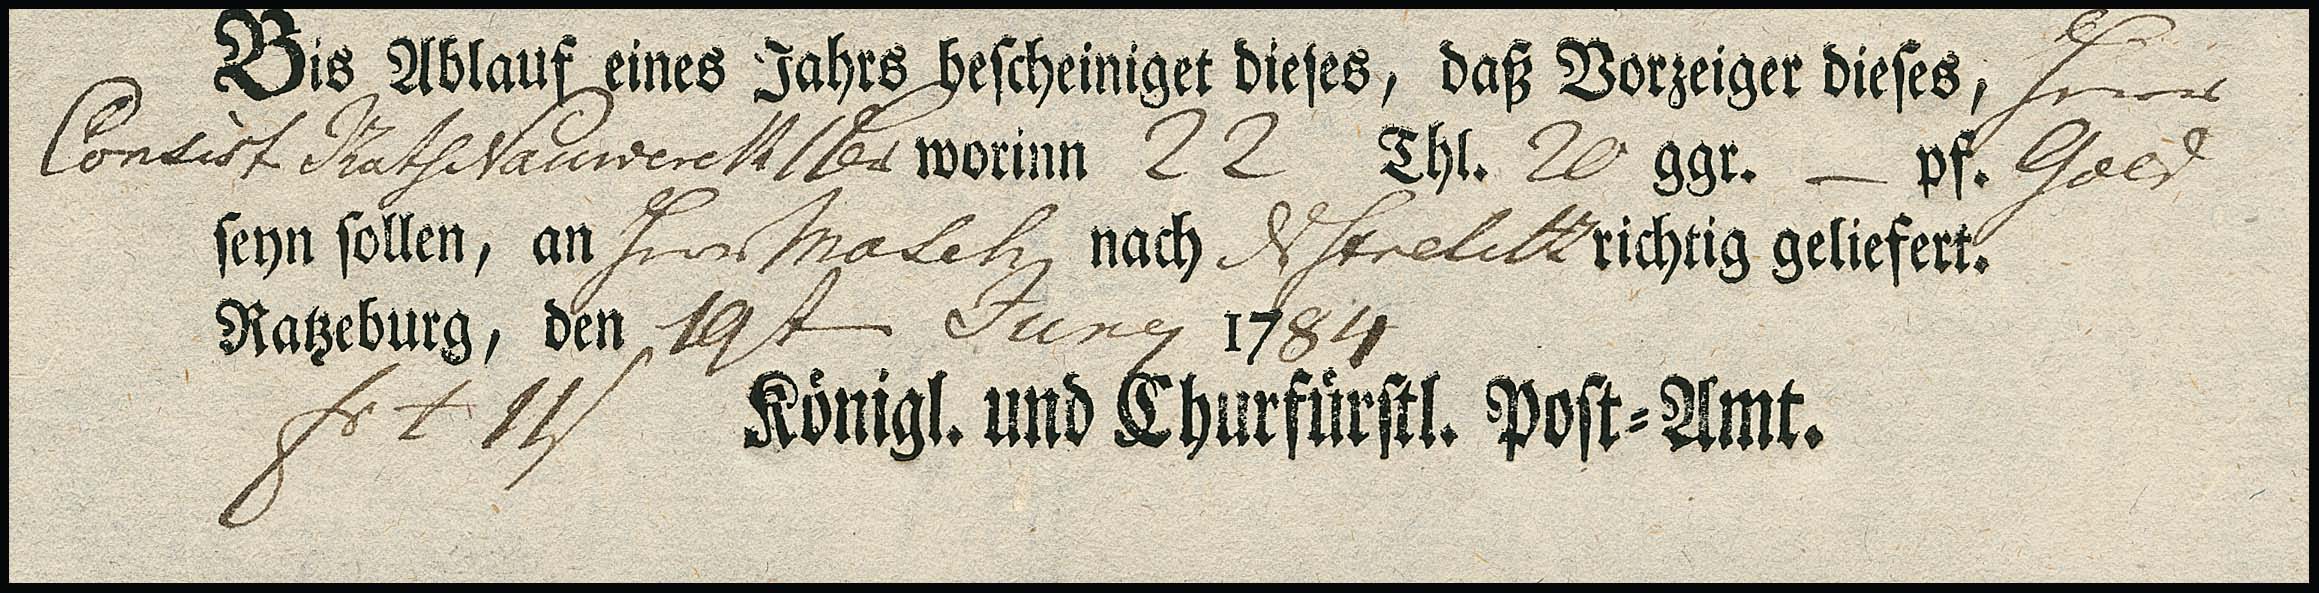 Bis Ablauf eines Jahrs bescheiniget dieses, daß Vorzeiger dieses, Herrn
Consist Rath Nauwerck worinn 22 Thl. 20 ggr. — pf. Gold
seyn sollen, an Herrn Masch nach N Strelitz richtig geliefert.
Ratzeburg, den 19t Juny 1784
Königl. und Churfürstl. Post-Amt.